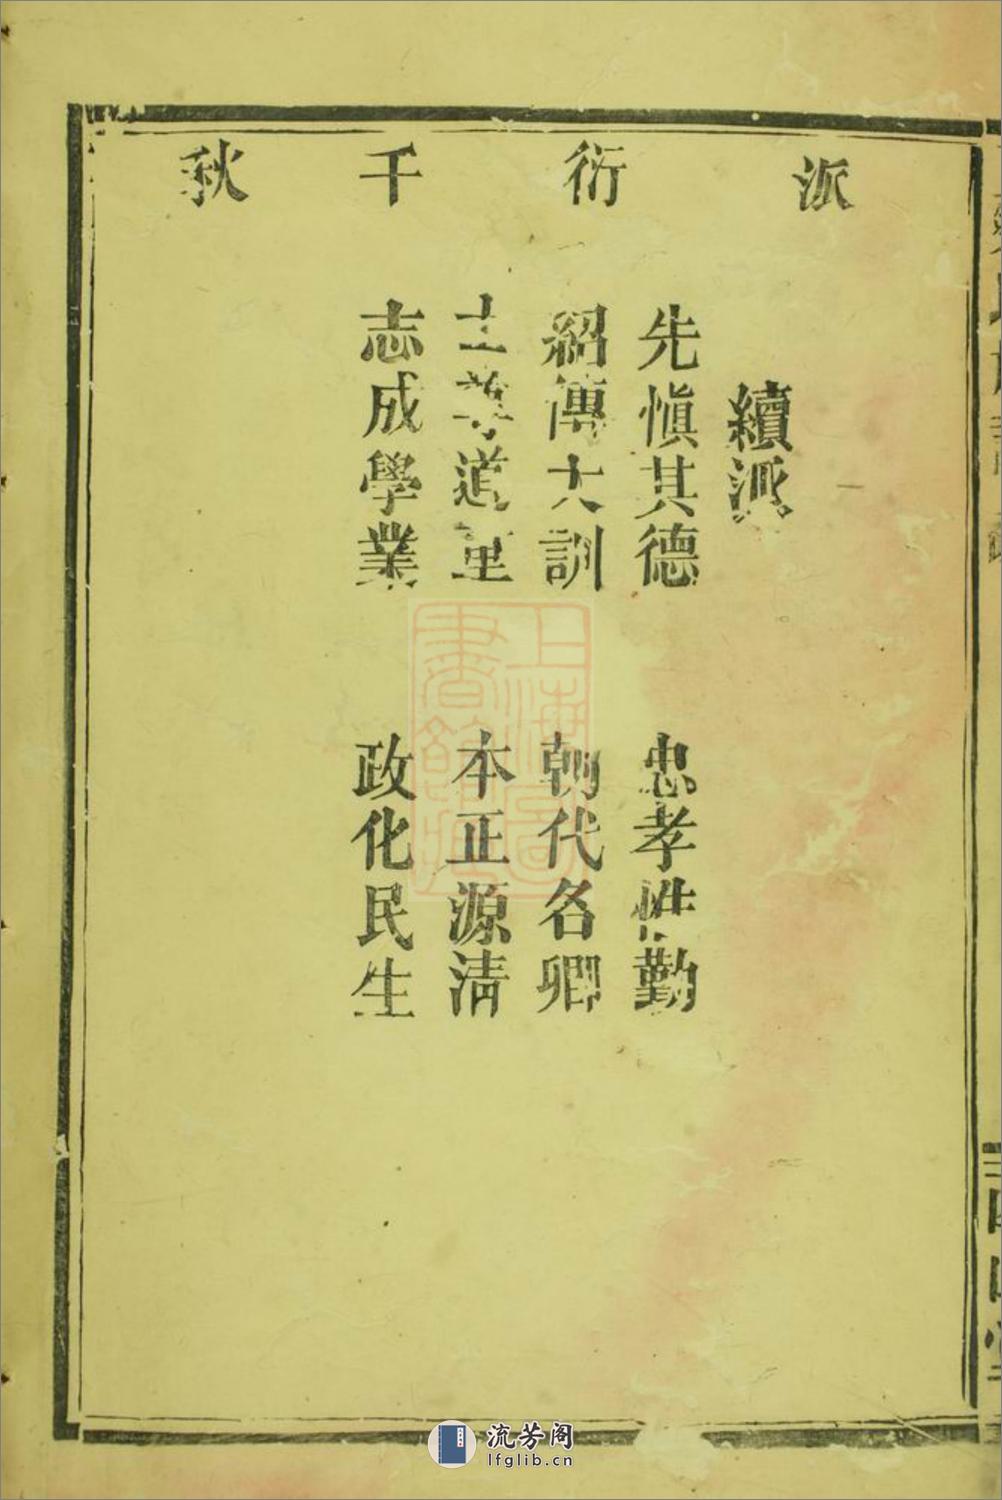 派衍千秋
續派
先愼其德　忠孝性勤
紹傳大訓　朝代名卿
士尊道重　本正源清
志成學業　政化民生
上海圖書館藏
流芳阁
lfglib.cn